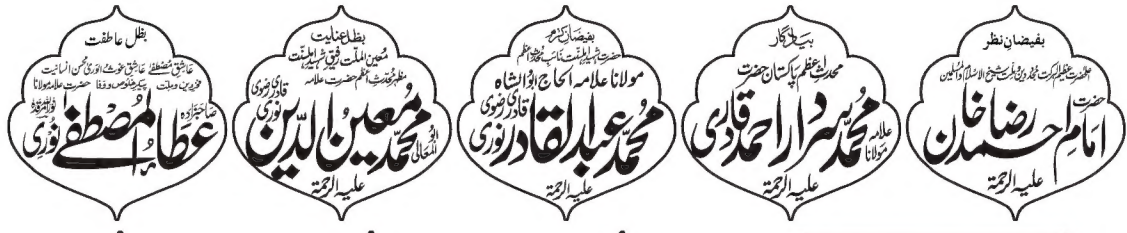 بفیضانِ نظر
اعلیٰحضرت عظیم البرکت مجدد دین وملت شیخ الاسلام والمسلمین
حضرت
امام احمد رضا خان
علیہ الرحمۃ
بیادگار
محدث اعظم پاکستان حضرت
علامہ مولانا
محمد سردار احمد قادری
علیہ الرحمۃ
بفیضانِ کرم
حضرت شہید اہلسنت نائب محدث اعظم
مولانا علامہ الحاج ابوالشاہ
محمد عبدالقادر قادری رضوی نوری
علیہ الرحمۃ
بظل عنایت
معین الملت رفیق شہید اہلسنت
مظہر محدث اعظم حضرت علامہ
ابو المعالی
محمد معین الدین قادری رضوی نوری
علیہ الرحمۃ
بظل عاطفت
عاشق مصطفےٰ عاشق غوث الوریٰ محسن انسانیت
پیکر خلوص و وفا حضرت علامہ مولانا
صاحبزادہ
عطاء المصطفےٰ نوری